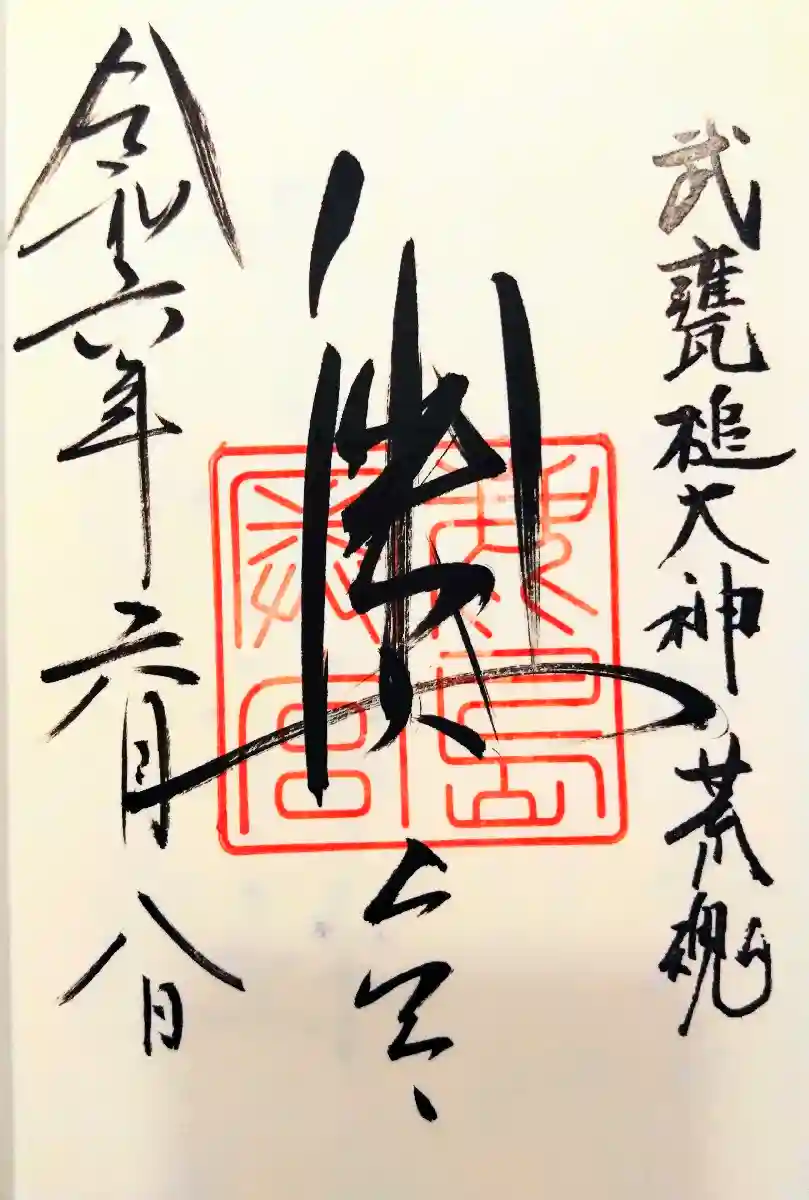 武甕槌大神荒魂
奥宮
鹿島
奥宮
令和六年六月八日